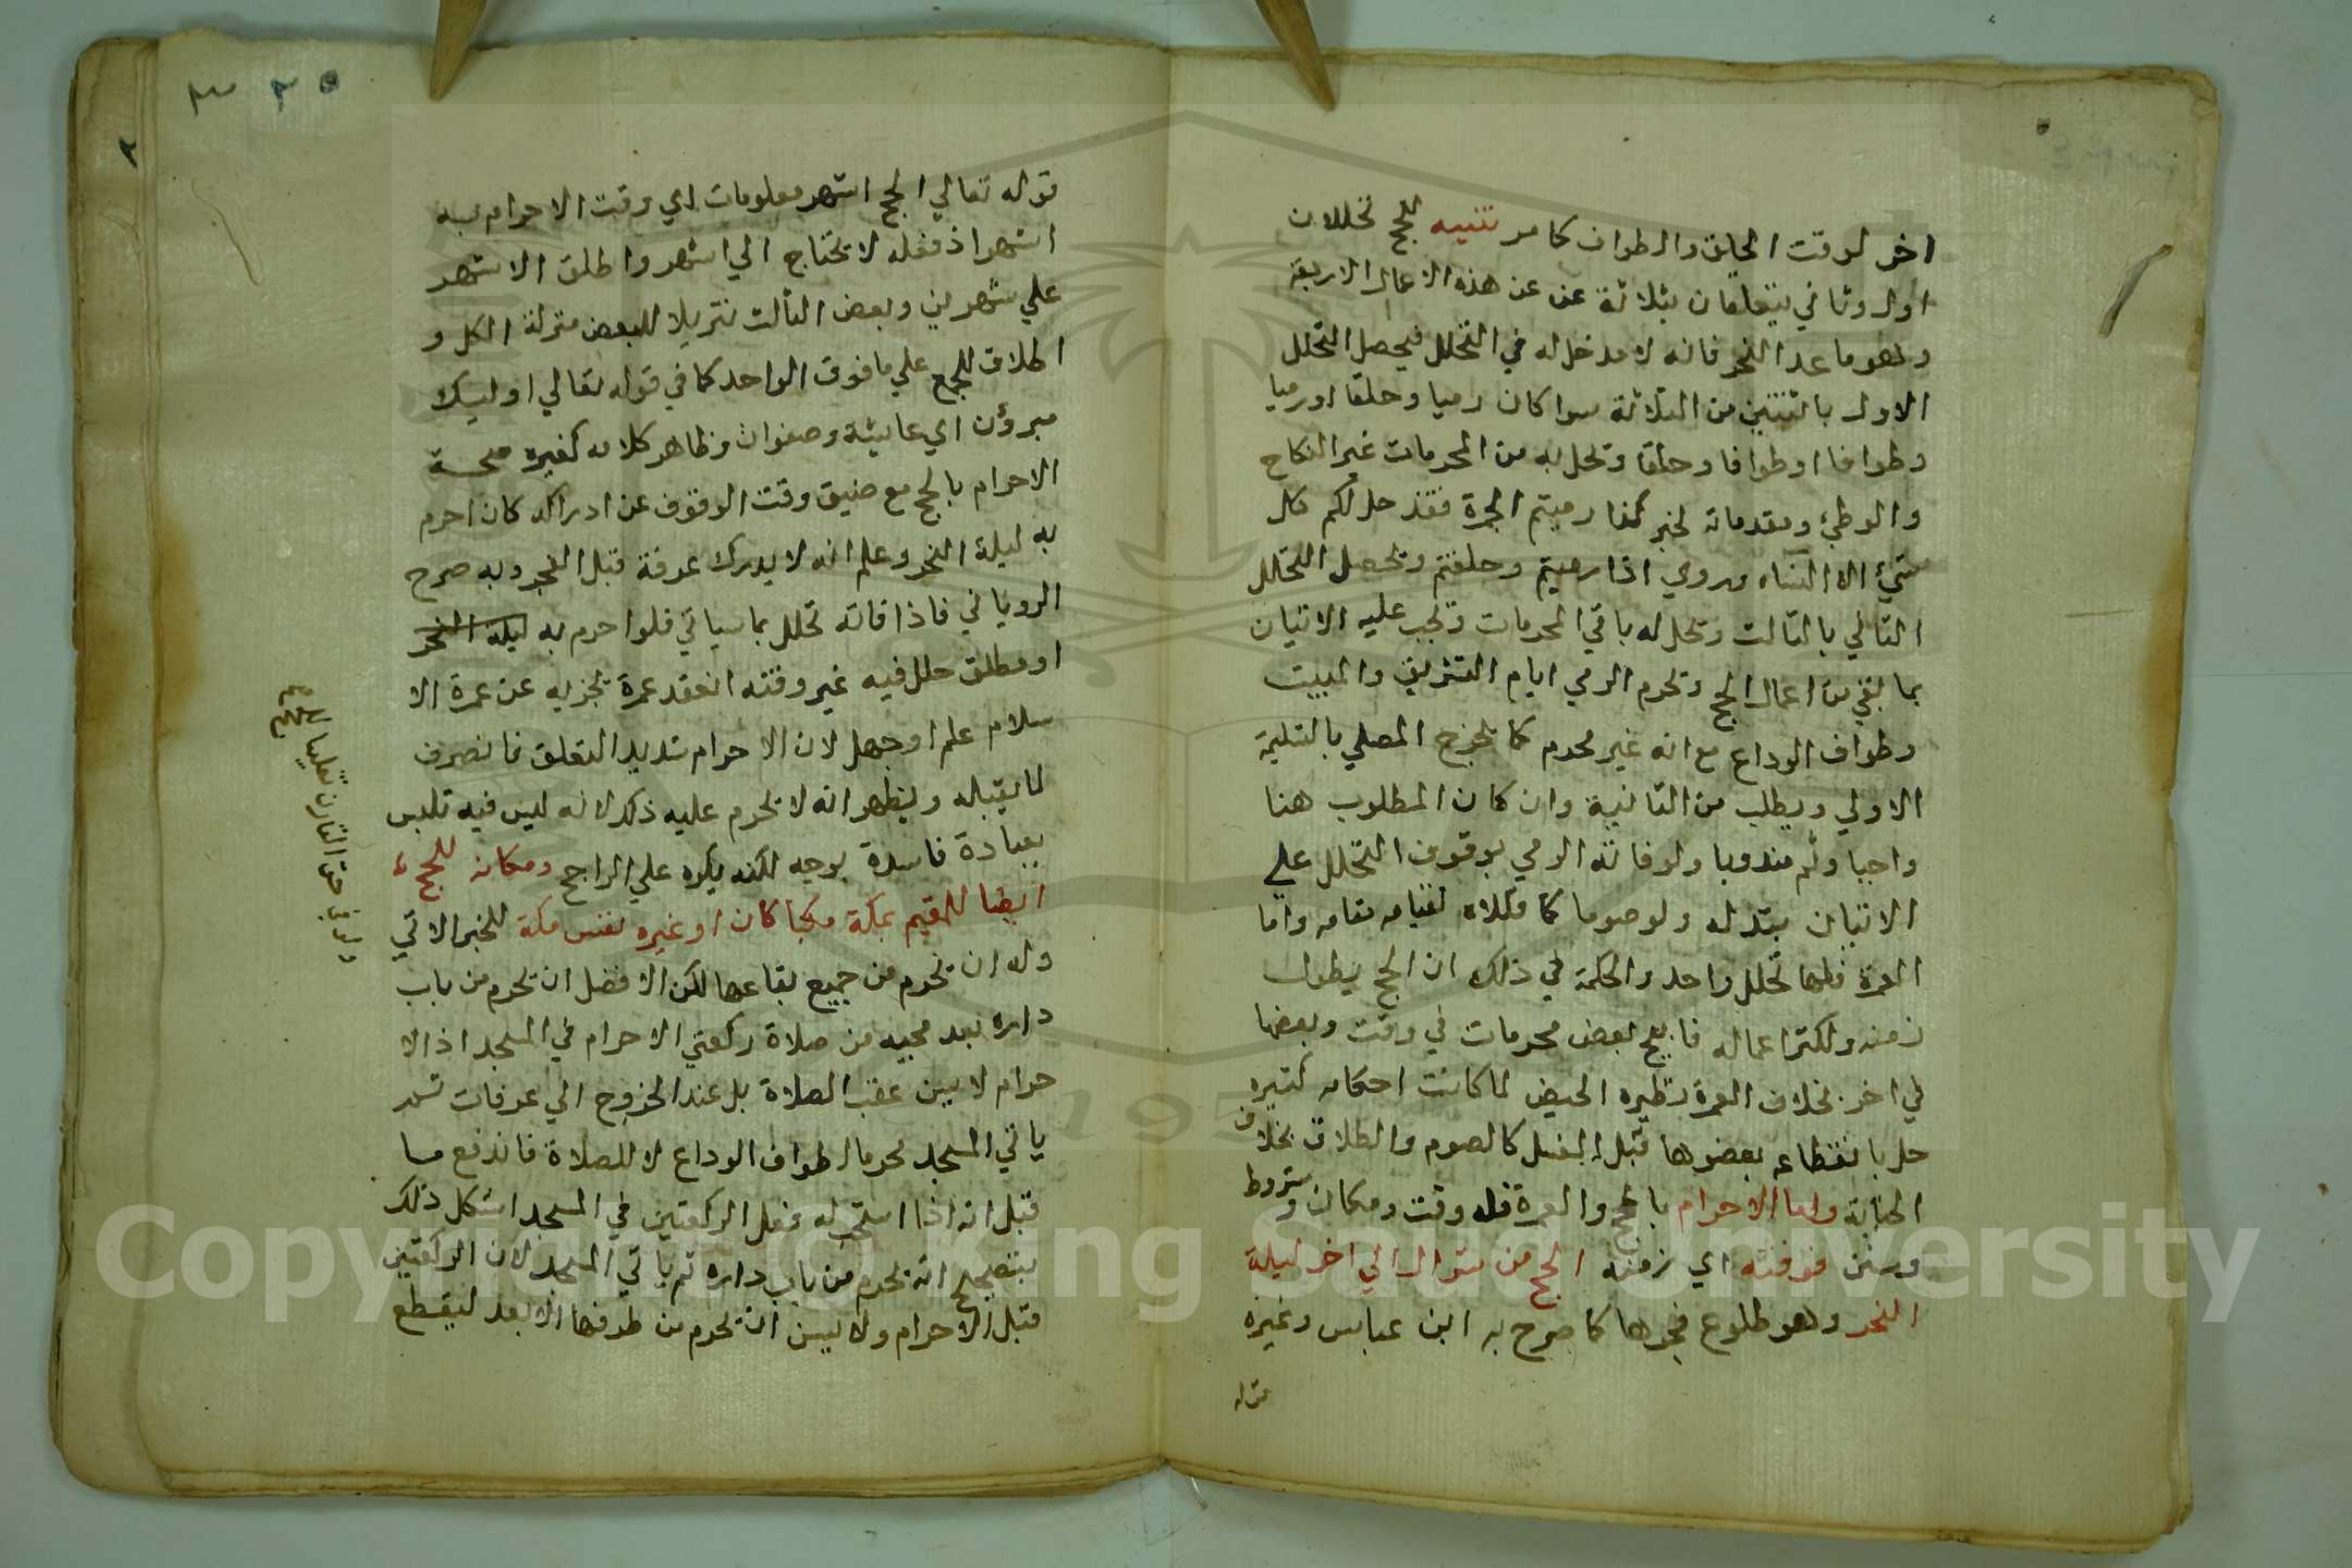 اخر لوقت الحلق والطواف كما مر تنبيه للحج تحللان
اول وثاني يتعلقان بثلاثة من هذه الاعمال الاربعة
وهو ما عدا النحر فانه لا مدخل له في التحلل فيحصل التحلل
الاول باثنتين من الثلاثة سوا كان رميا وحلقا او رميا
وطوافا او طوافا وحلقا وتحل به من المحرمات غير النكاح
والوطئ ومقدماته لخبر اذا رميتم الجمرة فقد حل لكم كل
شيئ الا النساء وروي اذا رميتم وحلقتم وتحصل التحلل
الثاني بالثالث وتحل له باقي المحرمات وتجب عليه الاتيان
بما بقي من اعمال الحج وتحرم الرمي ايام التشريق والمبيت
وطواف الوداع مع انه غير محرم كما يخرج المصلي بالتسليمة
الاولي ويطلب من الثانية وان كان المطلوب هنا
واجبا وثم مندوبا ولو فاته الرمي بوقوف التحلل علي
الاتيان ببدله ولو صوما كما لقيامه مقامه واما
العمرة فلها تحلل واحد والحكمة في ذلك ان الحج يطول
زمنه وتكثر اعماله فابيح بعض محرمات في وقت وبعضها
في اخر بخلاف العمرة ونظيره الحيض لما كانت احكامه كثيره
حل بانقطاعه بعضوها قبل الغسل كالصوم والطلاق بخلاف
الجنابة واما الاحرام بالحج والعمرة فله وقت ومكان وشروط
وسنن فوقته اي زمنه الحج من شوال الي اخر ليلة
النحر وهو طلوع فجرها كما صرح به ابن عباس وغيره
قوله
٢
قوله تعالي الحج اشهر معلومات اي وقت الاحرام به
اشهر اذ فعله لا يحتاج الي اشهر واطلق الاشهر
علي شهرين وبعض الثالث تنزيلا للبعض منزلة الكل و
اطلاق للجمع علي ما فوق الواحد كما في قوله تعالي اوليك
مبرؤن اي عايشة وصفوان وظاهر كلامه كغيره صحة
الاحرام بالحج مع ضيق وقت الوقوف عن ادراكه كان احرم
به ليلة النحر وعلم انه لا يدرك عرفة قبل الفجر وبه صرح
الروياني فاذا فاته تحلل بما سياتي فلو احرم به ليلة النحر
او مطلق حلل فيه غير وقته انعقد عمرة تجزيه عن عمرة الا
سلام علم او جهل لان الاحرام شديد التعلق فانصرف
لما يقبله ويظهر انه لا يحرم عليه ذلك لانه ليس فيه تلبس
بعبادة فاسدة بوجه لكنه يكره علي الراجح ومكانه للحج
ايضا للمقيم بمكة مكيا كان او غيره نفس مكة للخبر الاتي
وله ان يحرم من جميع بقاعها لكن الافضل ان يحرم من باب
داره بعد مجيه من صلاة ركعتي الاحرام في المسجد اذ الا
حرام لا يسن عقب الصلاة بل عند الخروج الي عرفات ثم
ياتي المسجد محرما لطواف الوداع لا للصلاة فاندفع ما
قيل انه اذا استحب له فعل الركعتين في المسجد اشكل ذلك
بتصحيح انه يحرم من باب داره ثم ياتي المسجد لان الركعتين
قبل الاحرام ولا يسن ان يحرم من طرفها الابعد ليقطع